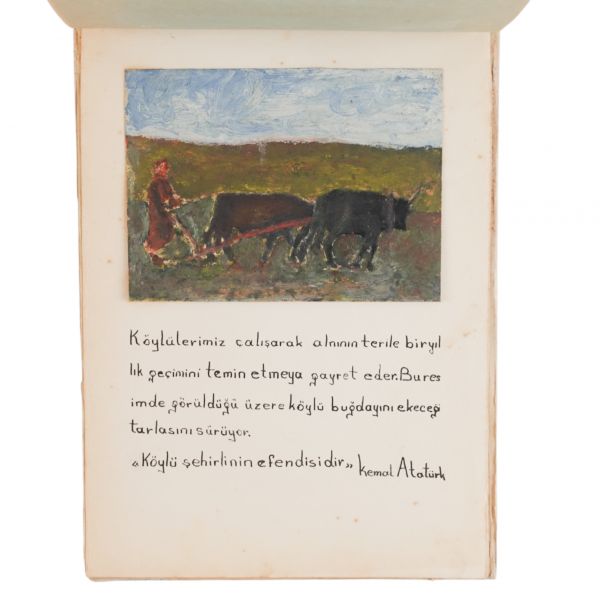 Köylülerimiz çalışarak alnının terile biryıl
lık geçimini temin etmeya gayret eder.Bures
imde görüldüğü üzere köylü buğdayını ekeceg
tarlasını sürüyor.
«Köylü şehirlinin efendisidir» Kemal Atatürk